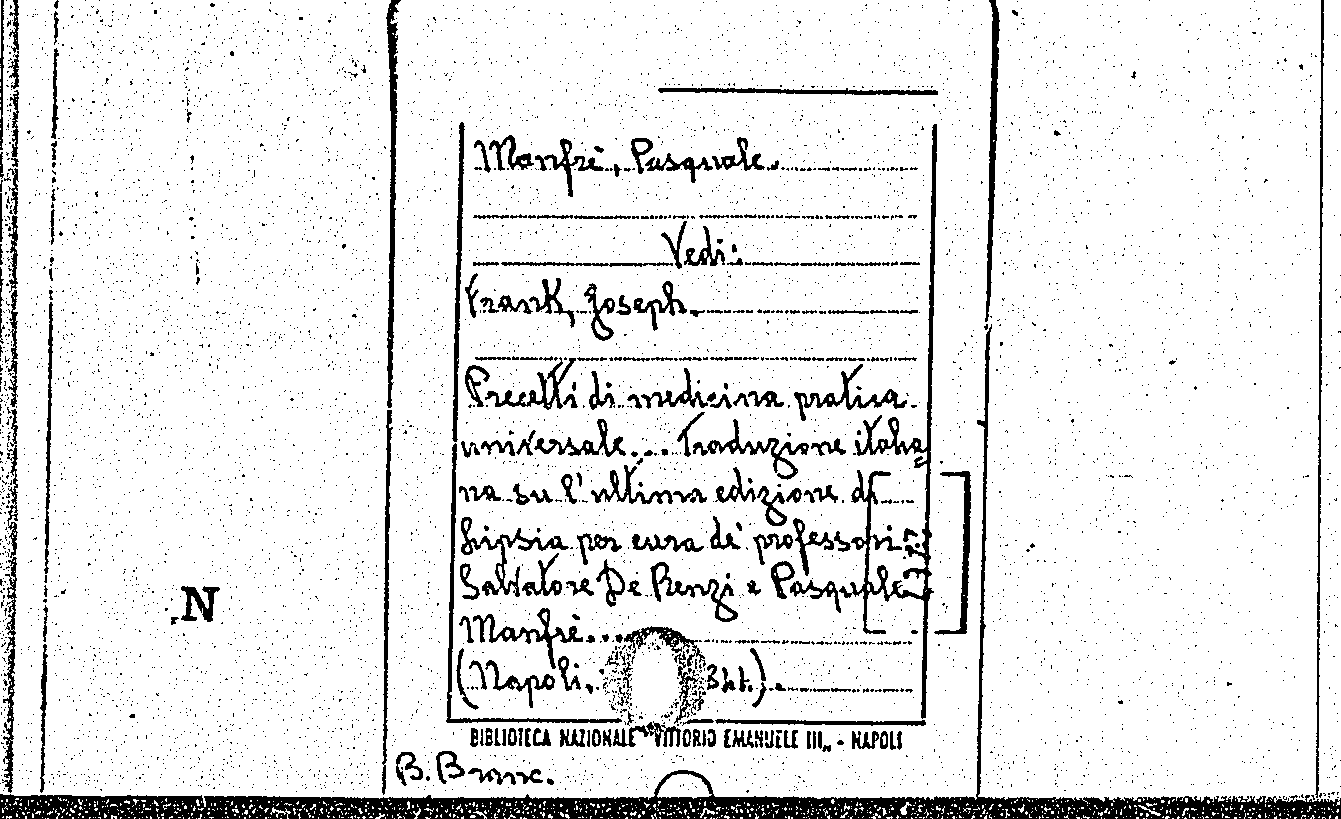 Manfrè, Pasquale.
Vedi:
Frank, Joseph.
Precetti di medicina pratica
universale... Traduzione italia=
na su l'ultima edizione di
Lipsia per cura de' professori
Salvatore De Renzi e Pasquale
Manfrè...
(Napoli,
N
BIBLIOTECA NAZIONALE "VITTORIO EMANUELE III„ - NAPOLI
B. Branc.